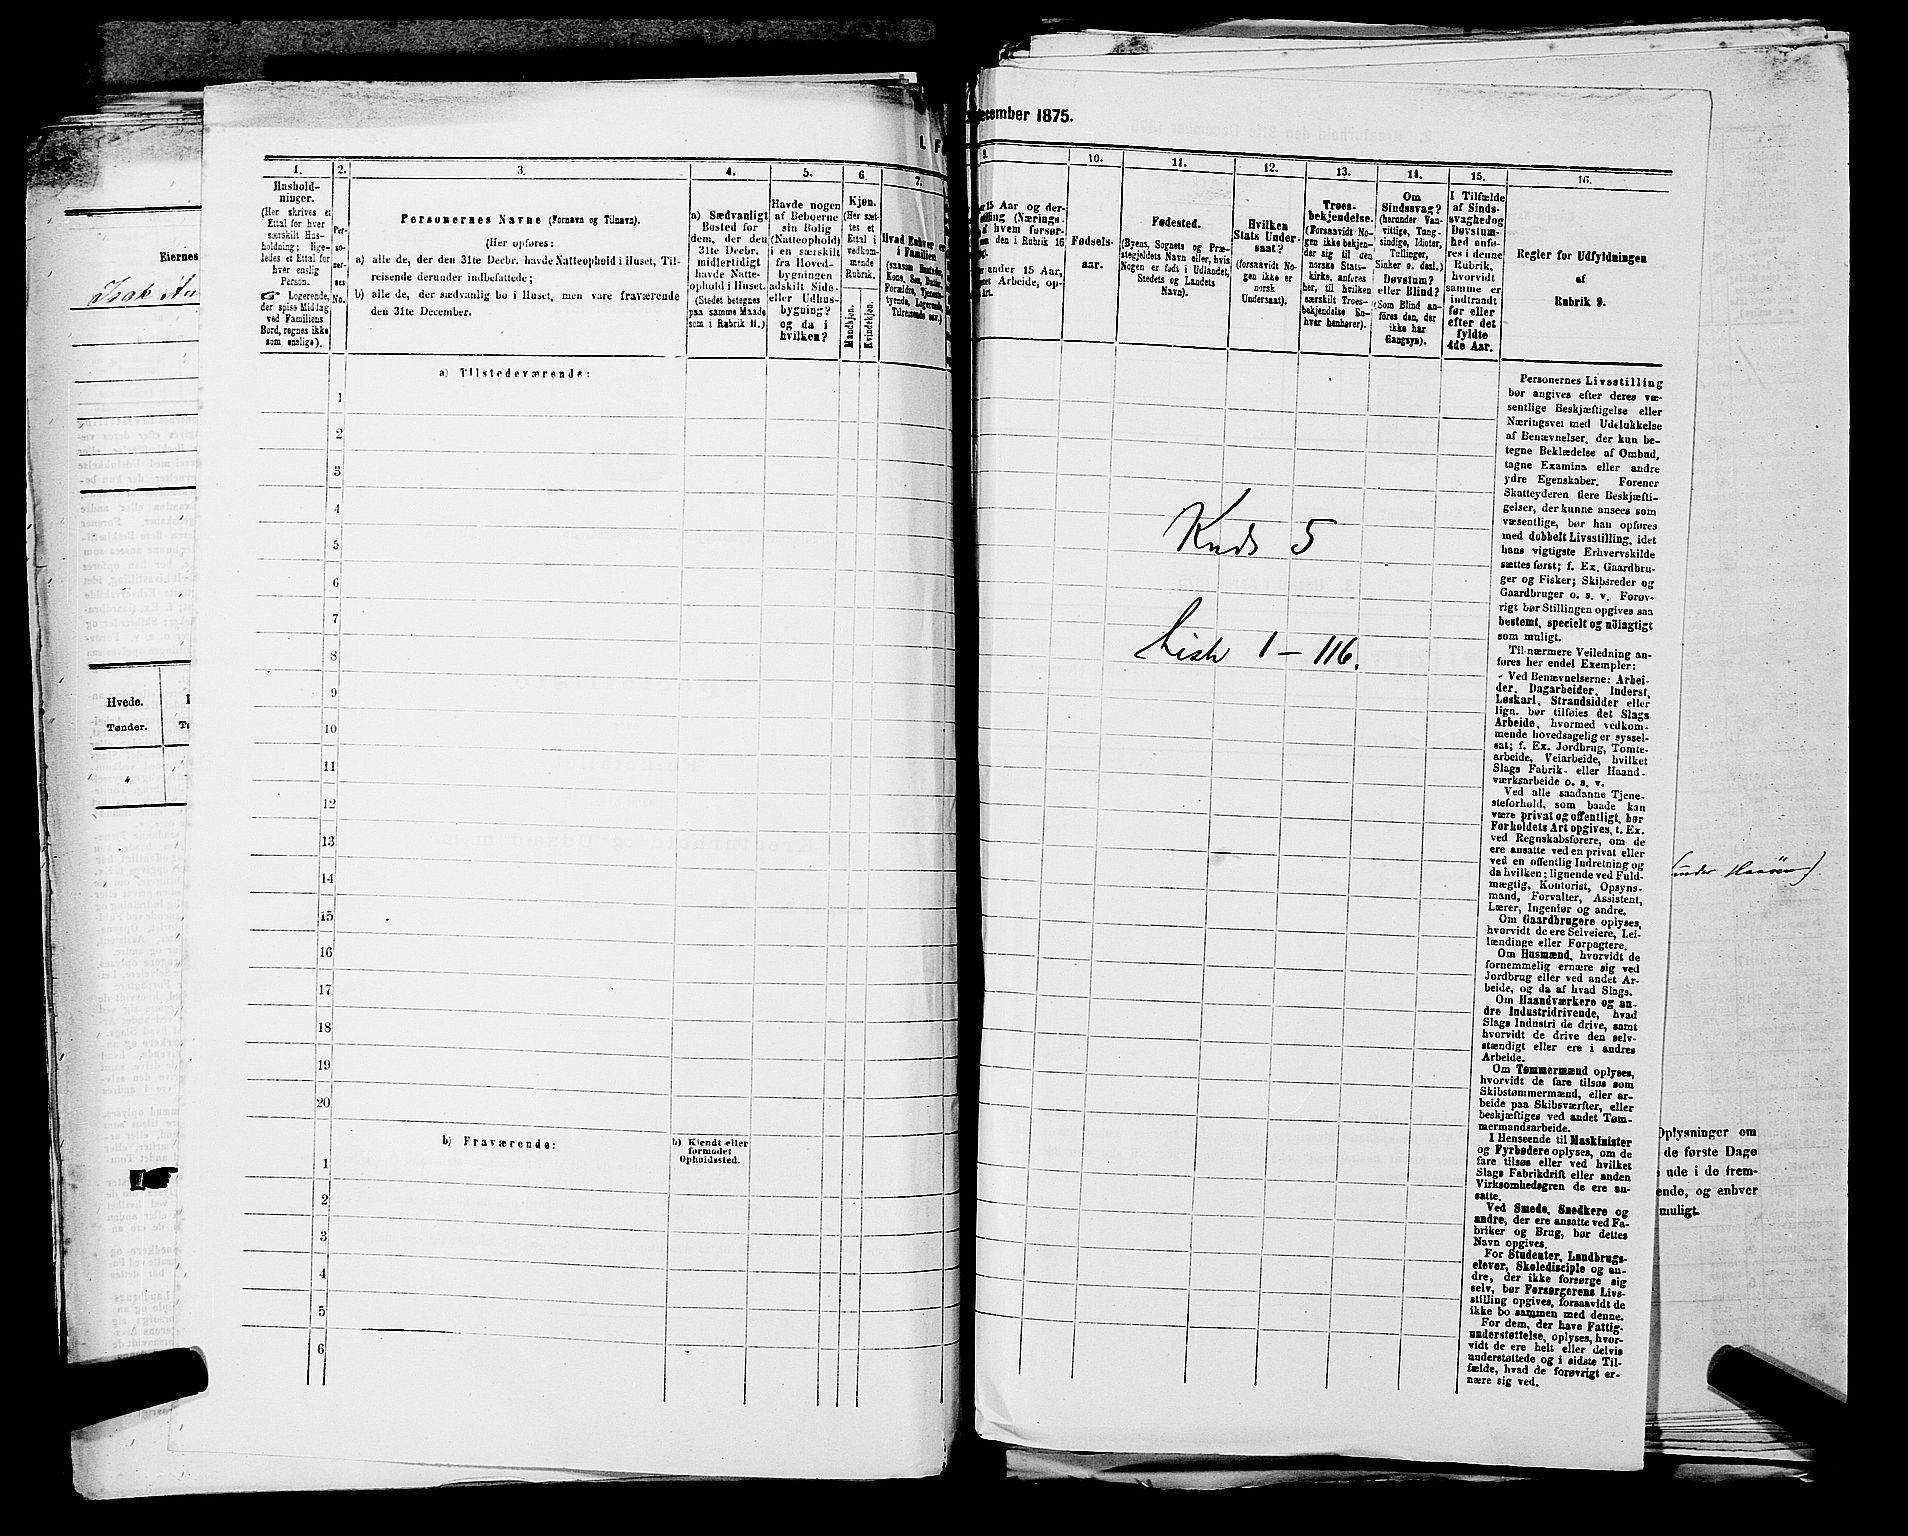 Eiernes
Isak
Hvede.
Tønder.
1.
Hushold-
ninger.
(Her skrives et
Ettal for hver
særskilt Hus-
holdning; lige-
ledes et Ettal for
hver enslig
Person.
☞ Logerende,
der spise Middag
ved Familiens
Bord, regnes ikke
som enslige).
2.
Per-
so-
ner-
nes
No.
3.
Personernes Navne (Fornavn og Tilnavn).
(Her opføres:
a) alle de, der den 31te Decbr. havde Natteophold i Huset, Til-
reisende derunder indbefattede;
b) alle de, der sædvanlig bo i Huset, men vare fraværende
den 31te December.
4.
a) Sædvanligt
Bosted for
dem, der den
31te Decbr.
midlertidigt
havde Natte-
ophold i Huset.
(Stedet betegnes
paa samme Maade
som i Rubrik 11.)
5.
Havde nogen
af Beboerne
sin Bolig
(Natteophold)
i en særskilt
fra Hoved-
bygningen
adskilt Side-
eller Udhus-
bygning?
og da i
hvilken?
6.
Kjøn.
(Her sæt-
tes et
Ettal i
vedkom-
mende
Rubrik.
Mandkjøn.
Kvindekjøn.
7.
Hvad Enhver er
i Familien
a) Tilstedeværende:
1
2
3
4
5
6
7
8
9
10
11
12
13
14
15
16
17
18
19
20
b) Fraværende:
b) Kjendt eller
formodet
Opholdssted.
1
2
3
4
5
6
ecember 1875.
9.
15 Aar og der-
stilling (Nærings-
hvem forsør-
den i Rubrik 16
under 15 Aar,
net Arbeide, op-
Art.
10.
Fødsels-
aar.
11.
Fødested.
(Byens, Sognets og Præ-
stegjeldets Navn eller, hvis
Nogen er født i Udlandet,
Stedets og Landets
Navn).
12.
Hvilken
Stats Under-
saat?
(forsaavidt No-
gen ikke er
norsk
Undersaat).
13.
Troes-
bekjendelse.
(Forsaavidt No-
gen ikke bekjen-
der sig til den
norske Stats-
kirke, anføres
her, til hvilken
særskilt Troes-
bekjendelse En-
hver henhører).
14.
Om
Sindssvag?
(herunder Van-
vittige, Tung-
sindige, Idioter,
Tullinger,
Sinker o. desl.)
Døvstum?
eller Blind?
(Som Blind an-
føres den, der
ikke har
Gangsyn).
15.
I Tilfælde
af Sinds-
svaghed og
Døvstum-
hed anfø-
res i denne
Rubrik,
hvorvidt
samme er
indtraadt
før eller
efter det
fyldte
4de Aar.
16.
Regler for Udfyldningen
af
Rubrik 9.
Kreds 5
Liste 1 – 116.
Personernes Livsstilling
bør angives efter deres væ-
sentlige Beskjæftigelse eller
Næringsvei med Udelukkelse
af Benævnelser, der kun be-
tegne Beklædelse af Ombud,
tagne Examina eller andre
ydre Egenskaber. Forener
Skatteyderen flere Beskjæfti-
gelser, der kunne ansees som
væsentlige, bør han opføres
med dobbelt Livsstilling, idet
hans vigtigste Erhvervskilde
sættes først; f. Ex. Gaardbru-
ger og Fisker; Skibsreder og
Gaardbruger o. s. v. Forøv-
rigt bør Stillingen opgives saa
bestemt, specielt og nöiagtigt
som muligt.
Til nærmere Veiledning an-
føres her endel Exempler:
Ved Benævnelserne: Arbei-
der, Dagarbeider, Inderst,
Løskarl, Strandsidder eller
lign. bør tilføies det Slags
Arbeide, hvormed vedkom-
mende hovedsagelig er syssel-
sat; f. Ex. Jordbrug, Tomte-
arbeide, Veiarbeide, hvilket
Slags Fabrik- eller Haand-
værksarbeide o. s. v.
Ved alle saadanne Tjene-
steforhold, som baade kan
være privat og offentligt, bør
Forholdets Art opgives, t. Ex.
ved Regnskabsførere, om de
ere ansatte ved en privat eller
ved en offentlig Indretning og
da hvilken; lignende ved Fuld-
mægtig, Kontorist, Opsyns-
mand, Forvalter, Assistent,
Lærer, Ingeniør og andre.
Om Gaardbrugere oplyses,
hvorvidt de ere Selveiere, Lei-
lændinge eller Forpagtere.
Om Husmænd, hvorvidt de
fornemmelig ernære sig ved
Jordbrug eller ved andet Ar-
beide, og da af hvad Slags.
Om Haandværkere og an-
dre Industridrivende, hvad
Slags Industri de drive, samt
hvorvidt de drive den selv-
stændigt eller ere i andres
Arbeide.
Om Tømmermænd oplyses,
hvorvidt de fare tilsøs som
Skibstømmermænd, eller ar-
beide paa Skibsværfter, eller
beskjæftiges ved andet Tøm-
mermandsarbeide.
I Henseende til Maskinister
og Fyrbødere oplyses, om de
fare tilsøs eller ved hvilket
Slags Fabrikdrift eller anden
Virksomhedsgren de ere an-
satte.
Ved Smede, Snedkere og
andre, der ere ansatte ved Fa-
briker og Brug, bør dettes
Navn opgives.
For Studenter, Landbrugs-
elever, Skoledisciple og an-
dre, der ikke forsørge sig
selv, bør Forsørgerens Livs-
stilling opgives, forsaavidt de
ikke bo sammen med denne.
For dem, der have Fattig-
understøttelse, oplyses, hvor-
vidt de ere helt eller delvis
understøttede og i sidste Til-
fælde, hvad de forøvrigt er-
nære sig ved.
Oplysninger om
de første Dage
ude i de frem-
ende, og enhver
muligt.